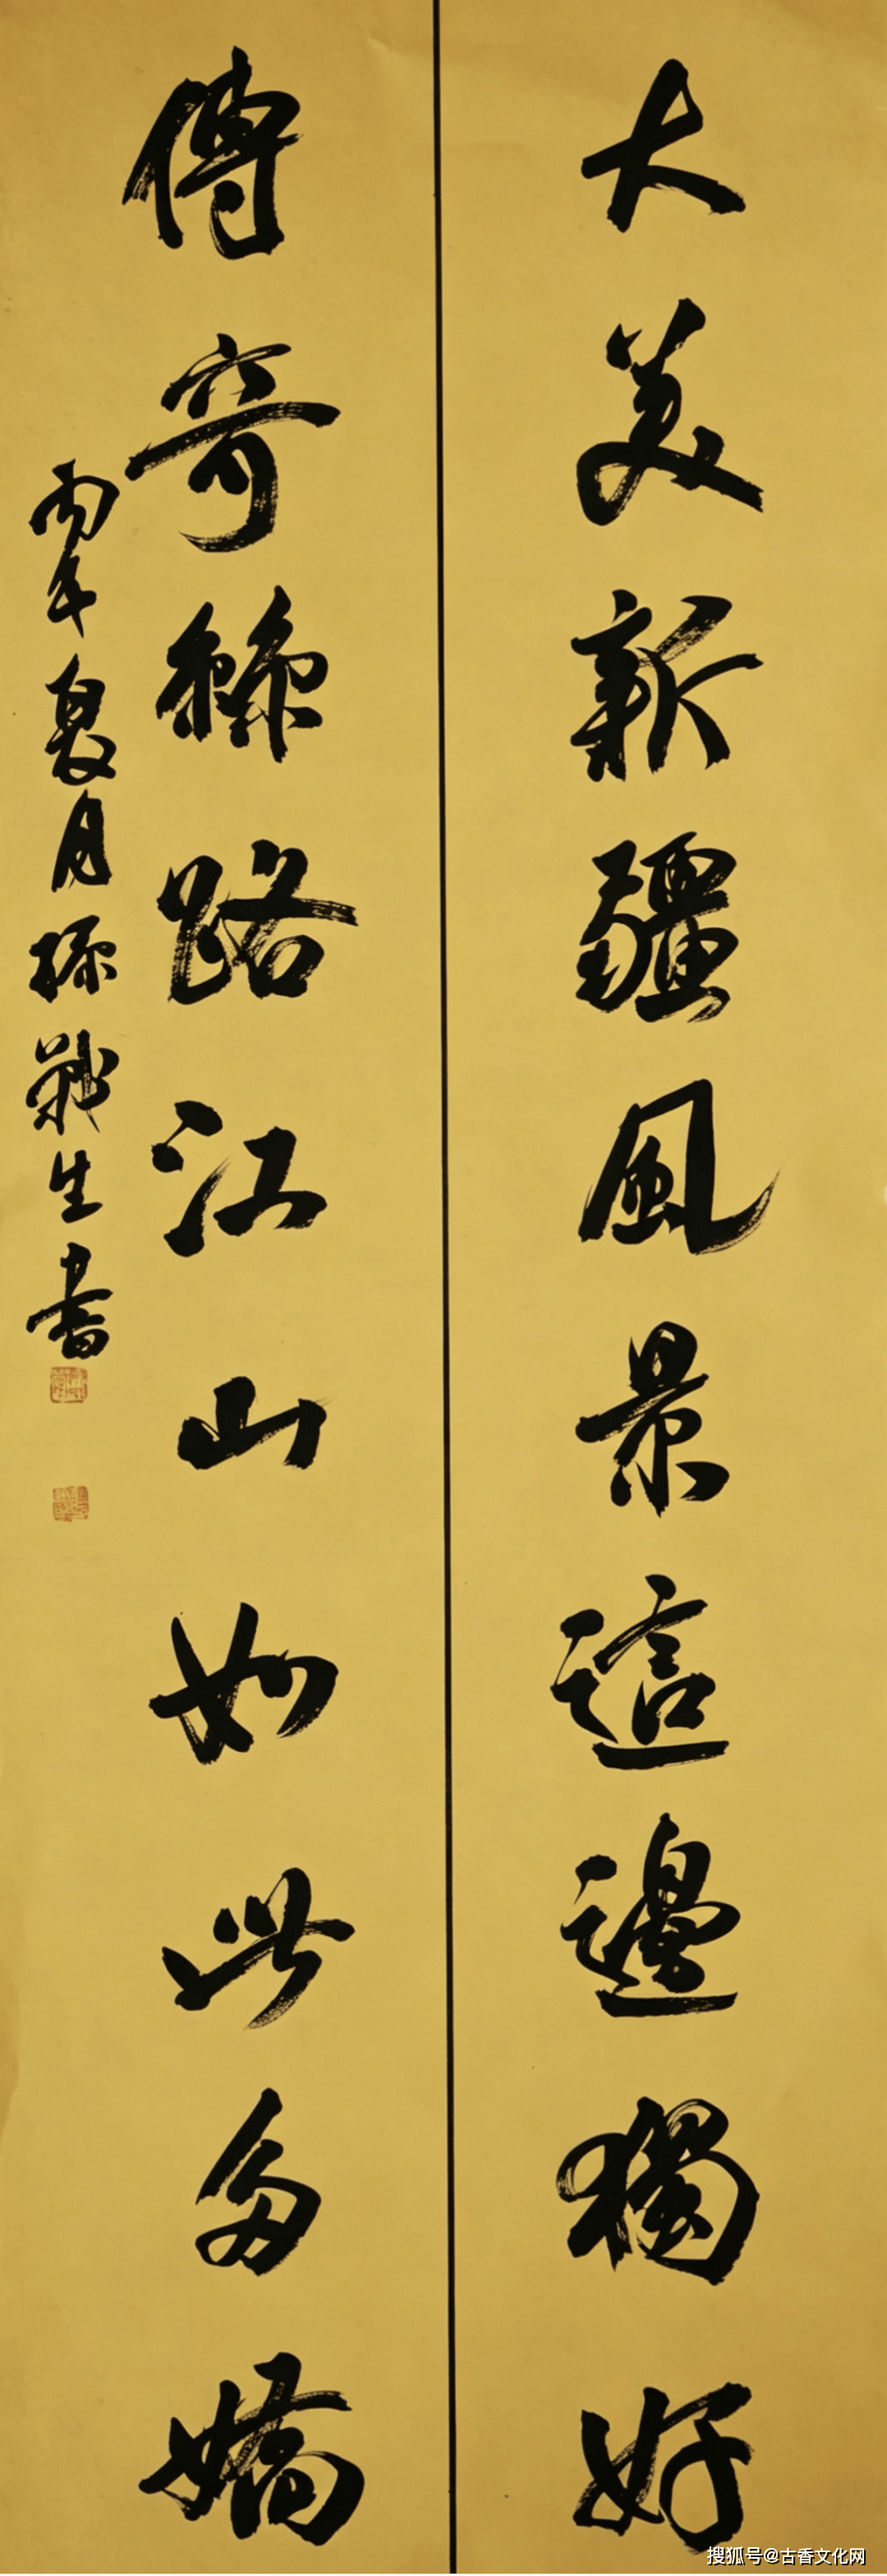 大美新疆風景這邊獨好
傳奇絲路江山如此多嬌
丙午夏月孫戰生書
搜狐号@古香文化网